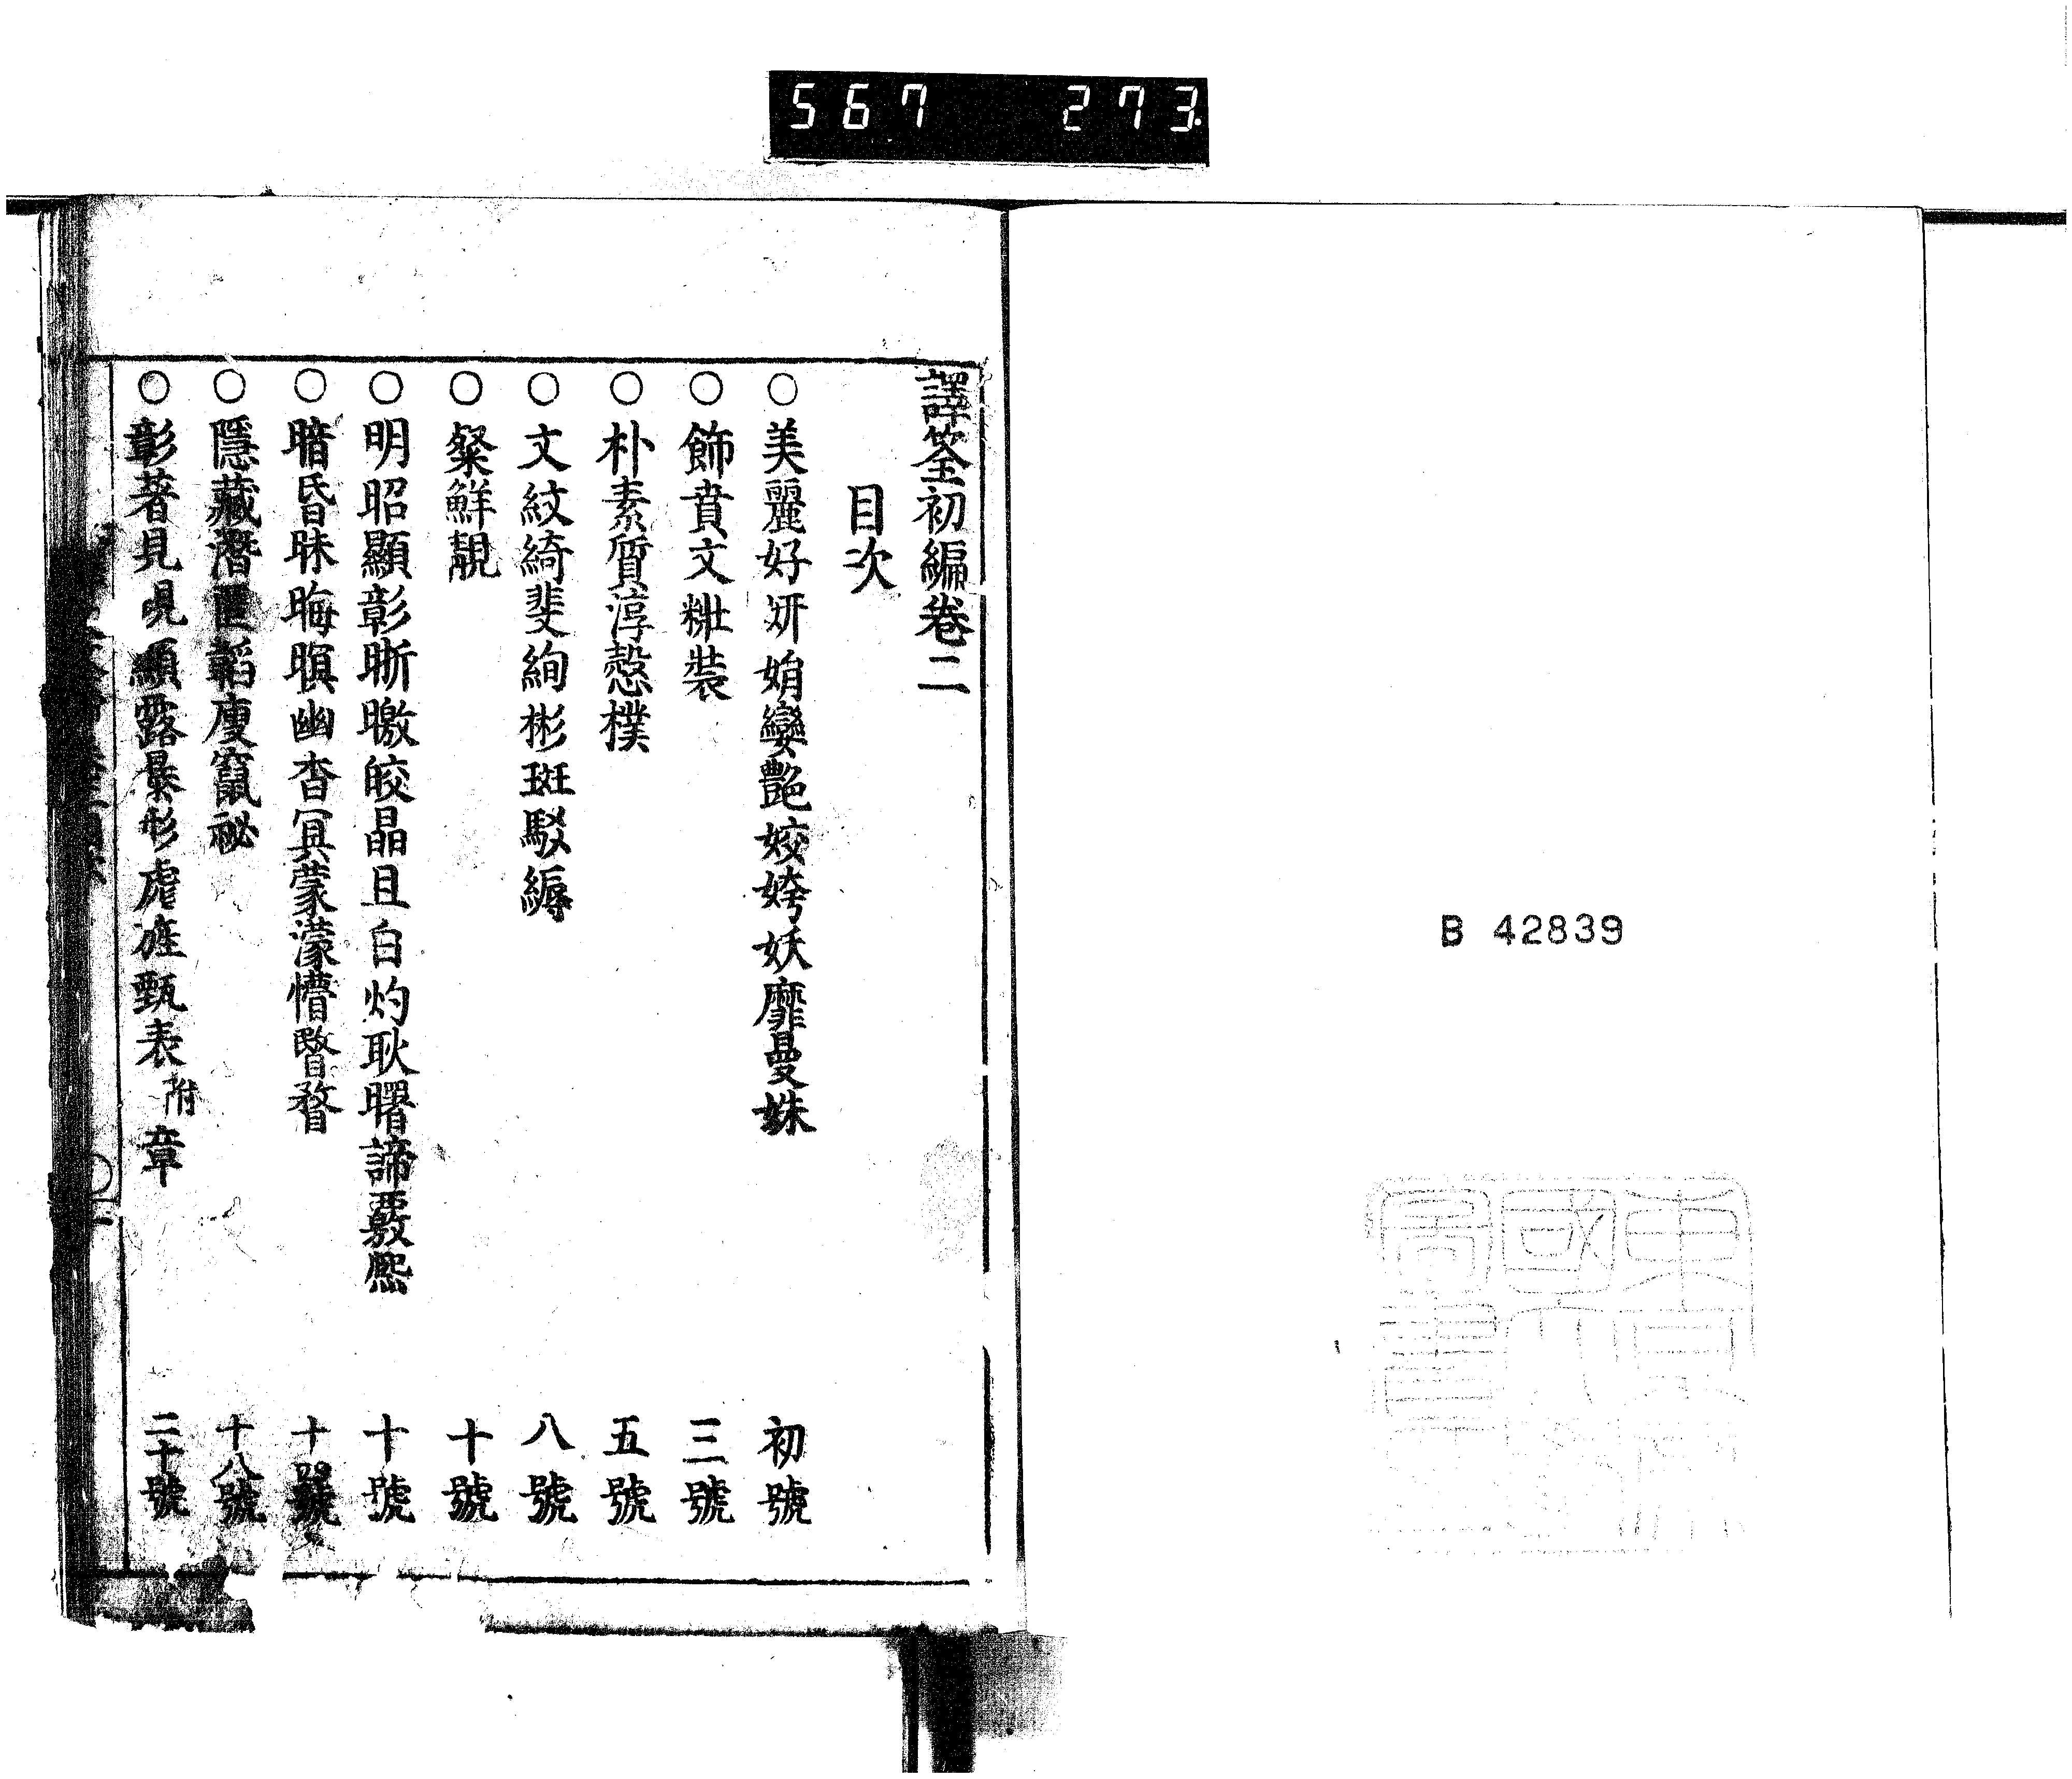 567 273
B 42839
譯筌初編卷二
目次
○美麗好妍娟孌艷姣姱妖靡曼姝 初號
○飾賁文粧裝 三號
○朴素質淳愨樸 五號
○文紋綺斐絢彬斑駁縟 八號
○粲鮮靚 十號
○明昭顯彰晣曒皎晶旦白灼耿曙諦覈熙 十號
○暗昏昧晦暝幽杳冥蒙濛懵瞖瞀
○隱藏潛匿韜廋竄祕 十八號
○彰著見現顯露暴形虗旌甄表附章 二十號